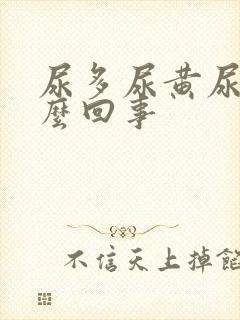 尿多尿黄尿
麼回事
不信天上掉餡